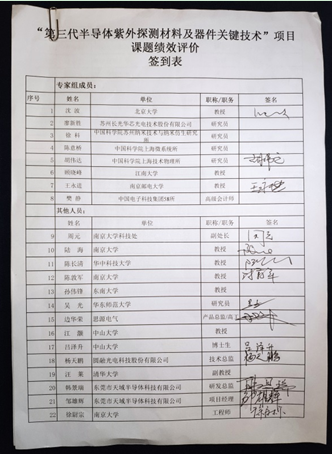 “第三代半导体紫外探测材料及器件关键技术”项目
课题绩效评价
签到表
专家组成员：
序号 姓名 单位 职称/职务 签名
1 沈波 北京大学 教授
2 苏州长光华芯光电技术股份有限公司 研究员
3 徐科 中国科学院苏州纳米技术与纳米仿生研究所 研究员
4 中国科学院上海微系统所 研究员
5 胡伟达 中国科学院上海技术物理所 研究员
6 顾晓峰 江南大学 教授
7 王永进 南京邮电大学 教授
8 樊 中国电子科技集团58所 高级会计师
其他人员：
姓名 单位 职称/职务 签名
9 周元 南京大学科技处 副处长
10 陆海 南京大学 教授
11 陈长清 华中科技大学 教授
12 陈敦军 南京大学 教授
13 孙伟锋 东南大学 教授
14 吴光 华东师范大学 研究员
15 边华荣 思源电气 产品总监/高工
16 江灏 中山大学 教授
17 吕泽升 中山大学 博士生
18 杨天鹏 圆融光电科技股份有限公司 技术总监
19 汪莱 清华大学 副教授
20 韩景瑞 东莞市天域半导体科技有限公司 研发总监
21 邹雄辉 东莞市天域半导体科技有限公司 项目经理
22 徐尉宗 南京大学 工程师